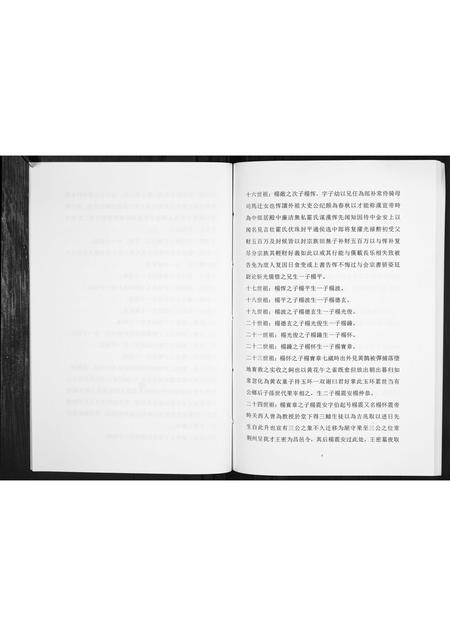 十六世祖：楊敞之次子楊恽，字子幼以兄任為郎补常侍骑母
司馬迁女也恽讀外祖大史公纪頗為春秋以才能称漢宣帝時
為中郎居殿中廉洁無私霍氏谋漢恽先闻知因待中金安上以
闻名見言杜霍氏伏珠封平通侯选中郎将复擢光禄勲初受父
财五百万及封候皆以封宗族後無子补财五百万以与恽补复
尽分宗族其輕财好義如此以或其行能与俱載長乐相失致被
告免为庶人复因日食变或上書告恽不悔过与会宗書骄姿廷
尉论斩光儀懷之兄生一子楊平。
十七世祖：楊恽之子楊平生一子楊波。
十八世祖：楊平之子楊波生一子楊德玄。
十九世祖：楊波之子楊德玄生一子楊光俊。
二十世祖：楊德玄之子楊光俊生一子楊鐘。
二十一世祖：楊光俊之子楊鐘生一子楊怀。
二十二世祖：楊鐘之子楊怀生一子楊寳章。
二十三世祖：楊怀之子楊寳章七歲時出外見黄鵲被彈捕落堕
地寳救之实收之飼以黄花午之雀既愈但放出朝出暮归如
常忽化為黄衣童子持玉环一双谢曰君好掌此玉环累世当有
公卿后子孫世代果宰相之，生二子楊震安楊仲恭。
二十四世祖：楊寳章之子楊震安字伯起号楊震又名楊怀震帝
時关西人曾為教授於堂下得三鳣生徒以為吉兆取以进日先
生自此升也宣有三公之象不久迁移为湖守果至三公之位常
荆州呈我才王密为昌邑令，其后楊震安过此处，王密墓夜取